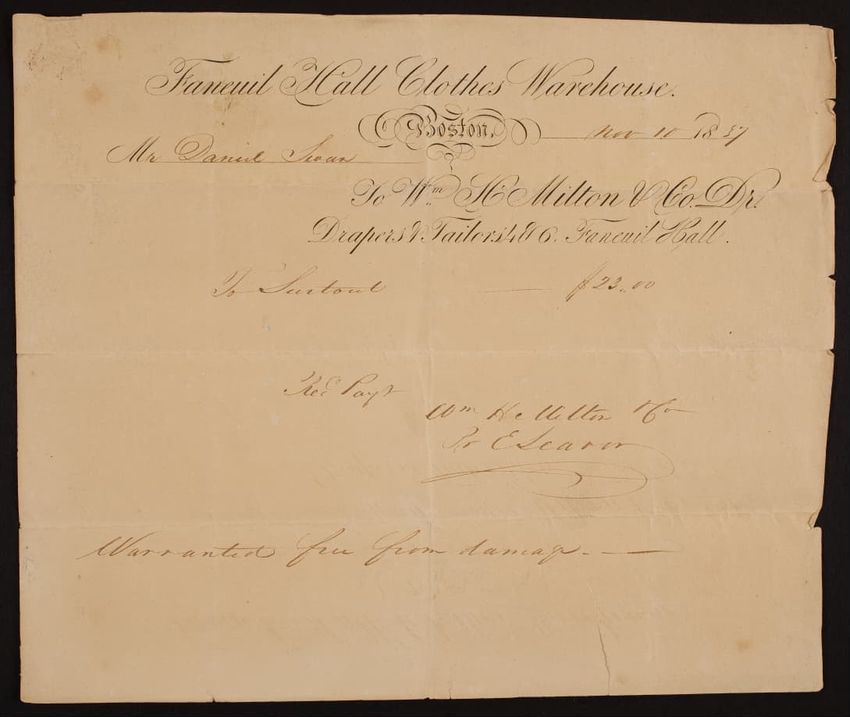 Faneuil Hall Clothes Warehouse.
Boston, Nov 10 1837
Mr Daniel Swan
To Wm. H Milton & Co. Dr.
Drapers & Tailors 4 & 6. Faneuil Hall.
To Surtout $23.00
Rec Payt
Wm H Milton & Co
Pr E Seaver
Warranted free from damage.